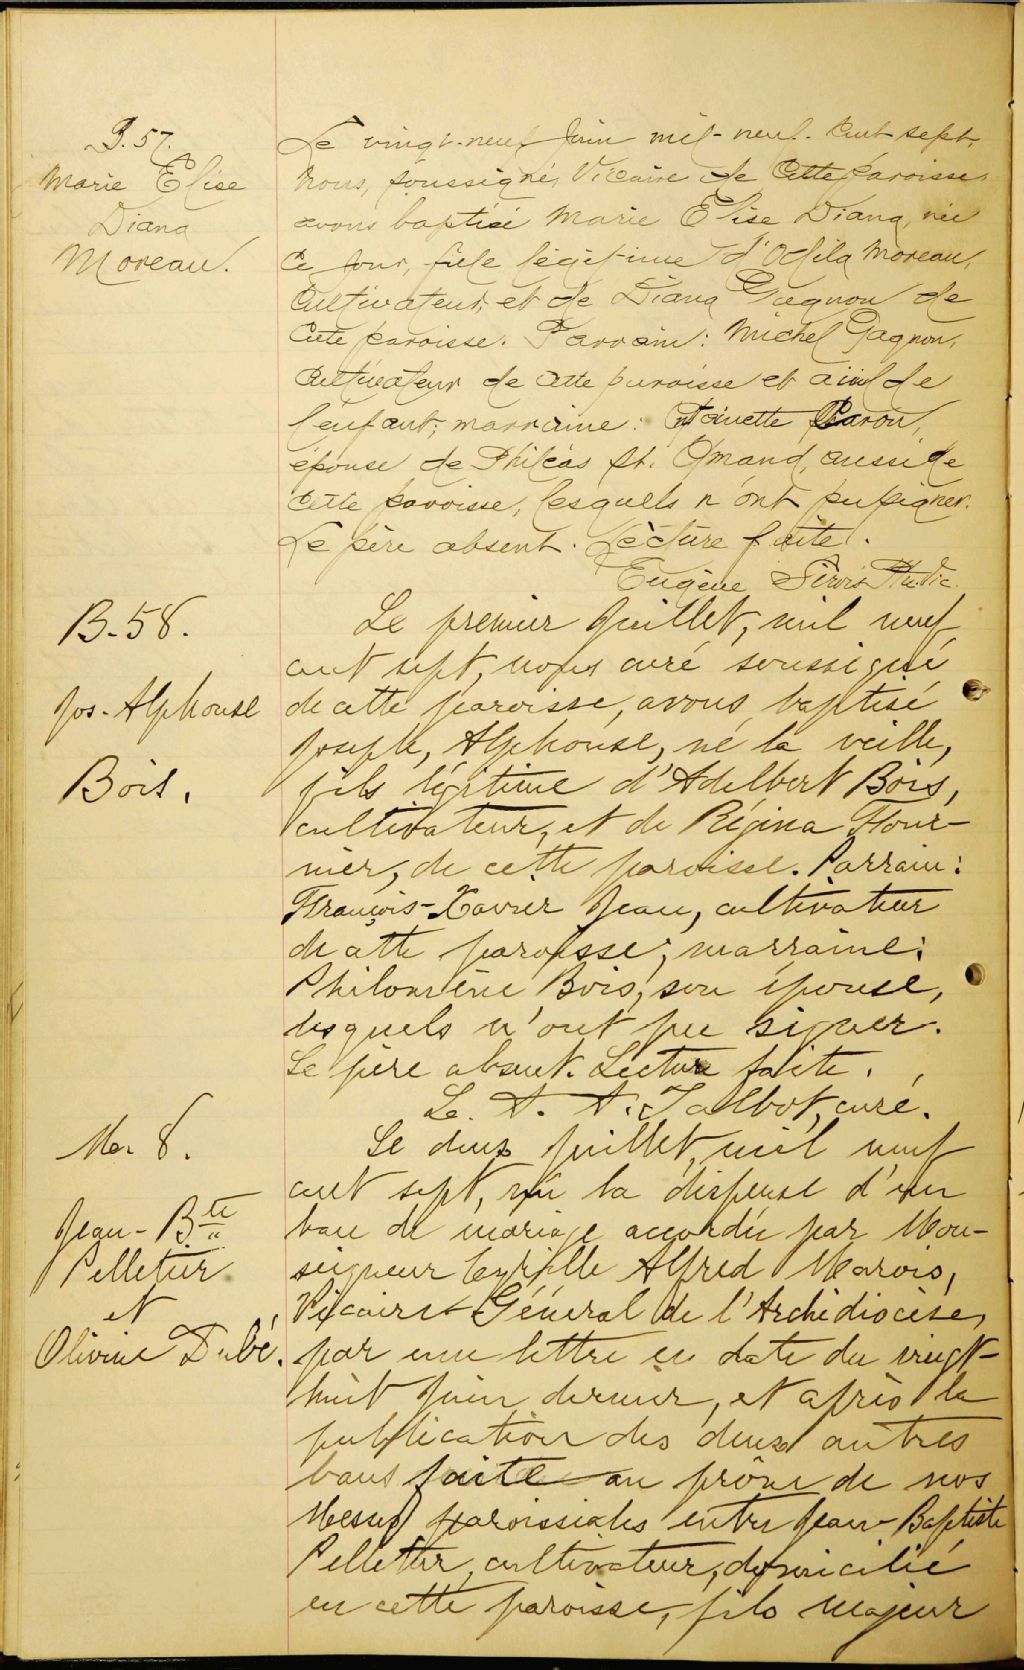 B. 57.
Marie Elise
Diana
Moreau.
Le vingt-neuf Juin mil-neuf-cent-sept,
Nous, soussigné, Vicaire de Cette Paroisse,
avons baptisé Marie Elise Diana, née
Ce Jour, fille légitime d'Odila Moreau,
Cultivateur, et de Diana Gagnon de
Cette paroisse. Parrain: Michel Gagnon,
Cultivateur de Cette paroisse et aieul de
l'enfant; marraine: Caron,
épouse de Philéas St. Amand, aussi de
Cette Paroisse, lesquels n'ont pu signer.
Le père absent. Lecture faite.
Eugène Sirois Ptre. Vic.
B-58.
Jos-Alphonse
Bois.
Le premier Juillet, mil neuf
cent sept, nous curé soussigné
de cette paroisse, avons baptisé
Joseph, Alphonse, né la veille,
fils légitime d'Adelbert Bois,
cultivateur, et de Régina Four-
nier, de cette paroisse. Parrain:
François-Xavier Jean, cultivateur
de cette paroisse; marraine:
Philomène Bois, son épouse,
lesquels n'ont pu signer.
Le père absent. Lecture faite.
L. A. A. Talbot, curé.
M. 8.
Jean-Bte
Pelletier
et
Olivine Dubé.
Le deux juillet, mil neuf
cent sept, vu la dispense d'un
ban de mariage accordée par Mon-
seigneur Cyrille Alfred Marois,
Vicaire-Général de l'Archidiocèse,
par une lettre en date du vingt-
huit Juin dernier, et après la
publication des deux autres
bans faite au prône de nos
Messes paroissiales entre Jean-Baptiste
Pelletier, cultivateur, domicilié
en cette paroisse, fils majeur